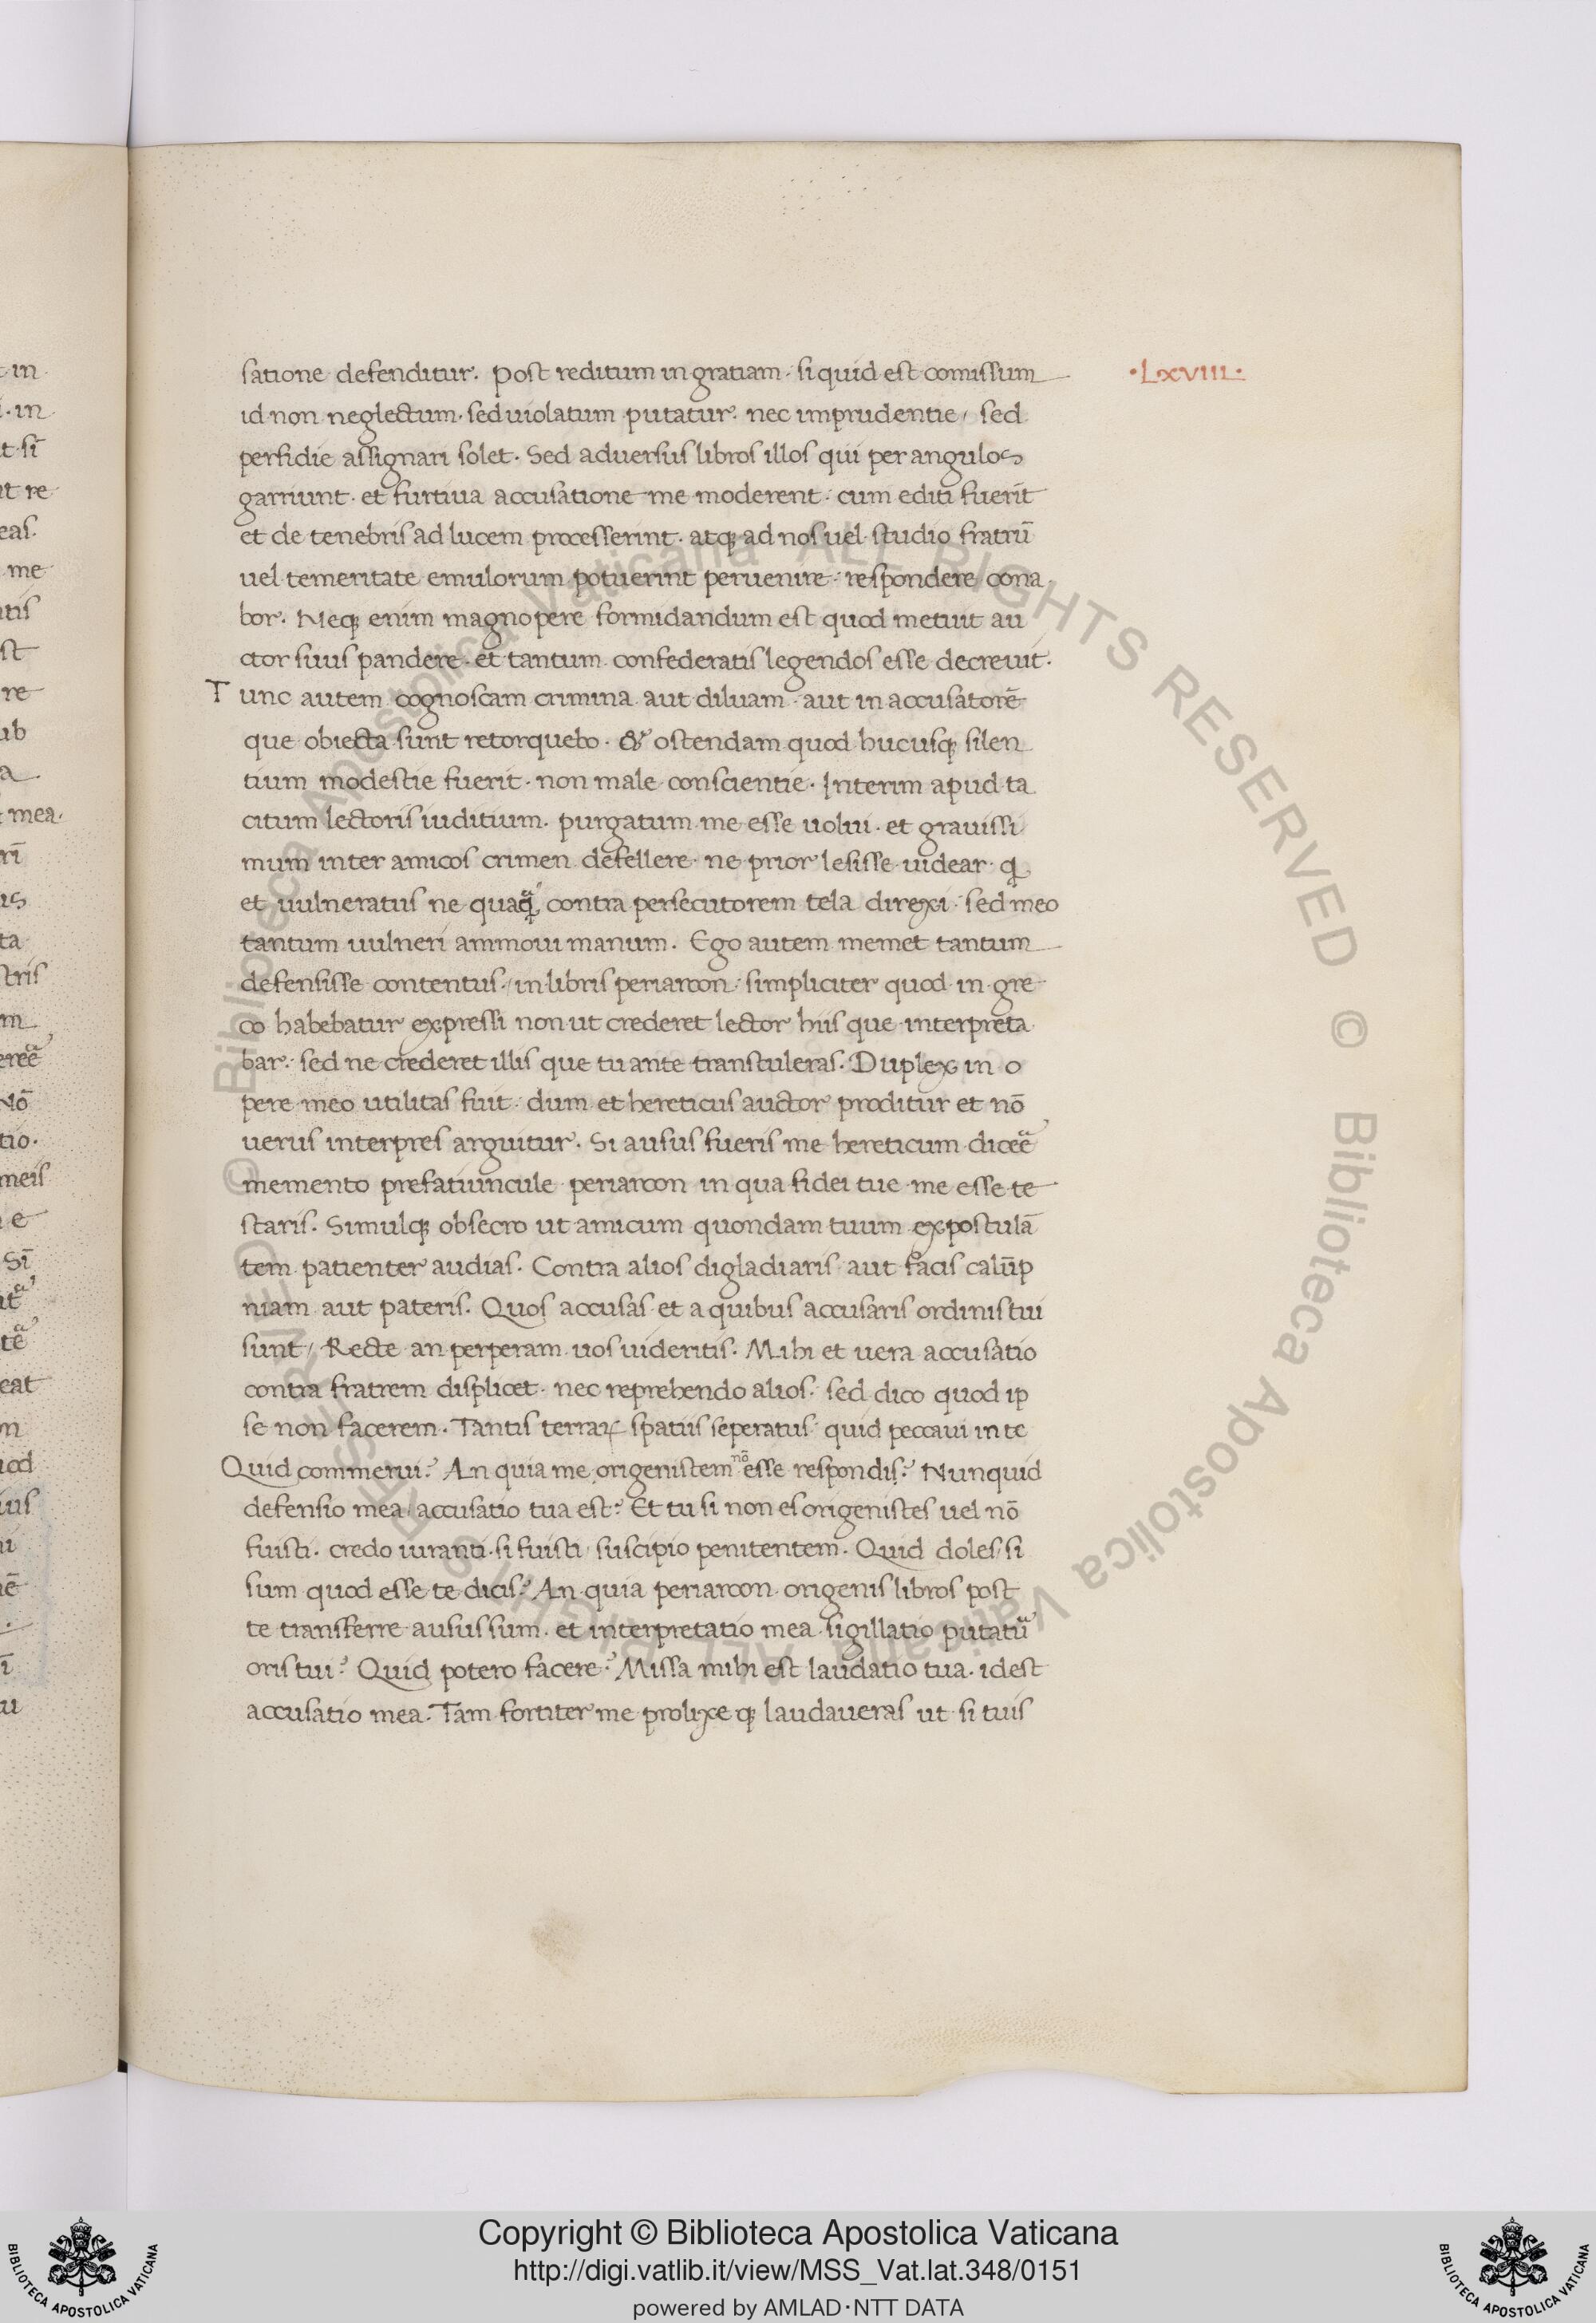 satione defenditur. Post reditum in gratiam. si quid est comissum
·LXVIII·
id non neglectum. sed uiolatum putatur. nec imprudentie, sed
perfidie assignari solet. Sed aduersus libros illos qui per angulos
garriunt. et furtiua accusatione me moderent. cum editi fueri̅t
et de tenebris ad lucem processerint. atqꝫ ad nos uel studio fratru̅
uel temeritate emulorum potuerint peruenire. respondere cona
bor. Neqꝫ enim magnopere formidandum est quod metuit au
ctor suus pandere. et tantum confederatis legendos esse decreuit.
Tunc autem cognoscam crimina aut diluam. aut in accusatore̅
que obiecta sunt retorquebo. & ostendam quod hucusqꝫ silen
tium modestie fuerit. non male conscientie. Interim apud ta
citum lectoris iuditium. purgatum me esse uolui. et grauissi
mum inter amicos crimen defellere. ne prior lesisse uidear. qͥ
et uulneratus ne quaqᷓ contra persecutorem tela direxi. sed meo
tantum uulneri ammoui manum. Ego autem memet tantum
defensisse contentus. in libris periarcon. simpliciter quod in gre
co habebatur expressi non ut crederet lector hiis que interpreta
bar. sed ne crederet illis que tu ante transtuleras. Duplex in o
pere meo utilitas fuit. dum et hereticus auctor proditur et no̅
uerus interpres arguitur. Si ausus fueris me hereticum diceᷓe
memento prefatiuncule periarcon in qua fidei tue me esse te
staris. Simulqꝫ obsecro ut amicum quondam tuum expostula̅
tem patienter audias. Contra alios digladiaris aut facis calu̅p
niam aut pateris. Quos accusas et a quibus accusaris ordinis tui
sunt, Recte an perperam uos uideritis. Mihi et uera accusatio
contra fratrem displicet. nec reprehendo alios. sed dico quod ip
se non facerem. Tantis terraꝝ spatiis seperatus quid peccaui in te
Quid commerui? An quia me origenistem no̅ esse respondi? Nunquid
defensio mea accusatio tua est? Et tu si non es origenistes uel no̅
fuisti. credo iuranti. si fuisti, suscipio penitentem. Quid doles, si
sum quod esse te dicis? An quia periarcon origenis libros post
te transferre ausus sum. et interpretatio mea sigillatio putatuᷓ
oris tui? Quid potero facere? Missa mihi est laudatio tua. idest
accusatio mea. Tam fortiter me prolixe qꝫ laudaueras ut si tuis
© Biblioteca Apostolica Vaticana ALL RIGHTS RESERVED © Biblioteca Apostolica Vaticana ALL RIGHTS RESERVED
Copyright © Biblioteca Apostolica Vaticana
http://digi.vatlib.it/view/MSS_Vat.lat.348/0151
powered by AMLAD·NTT DATA
BIBLIOTECA APOSTOLICA VATICANA
BIBLIOTECA APOSTOLICA VATICANA